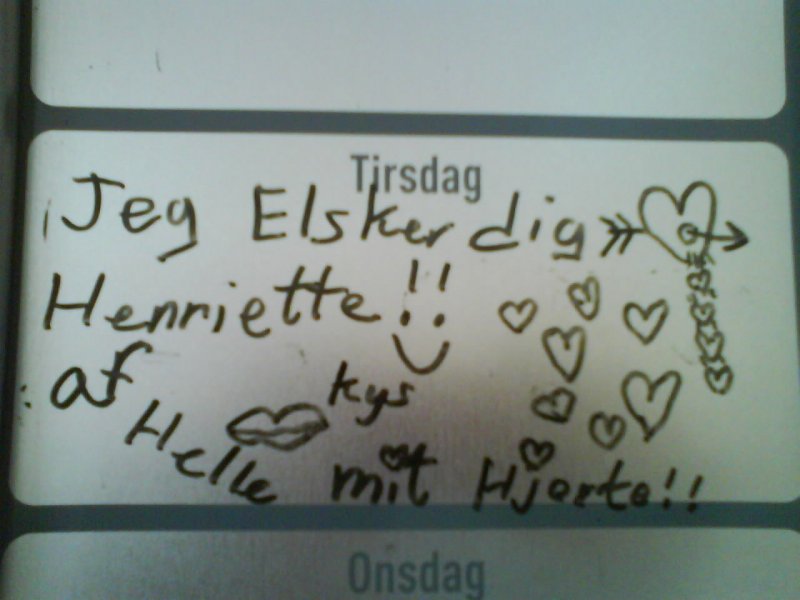 Tirsdag
Jeg Elsker dig
Henriette!!
af
kys
Helle mit Hjerte!!
Onsdag